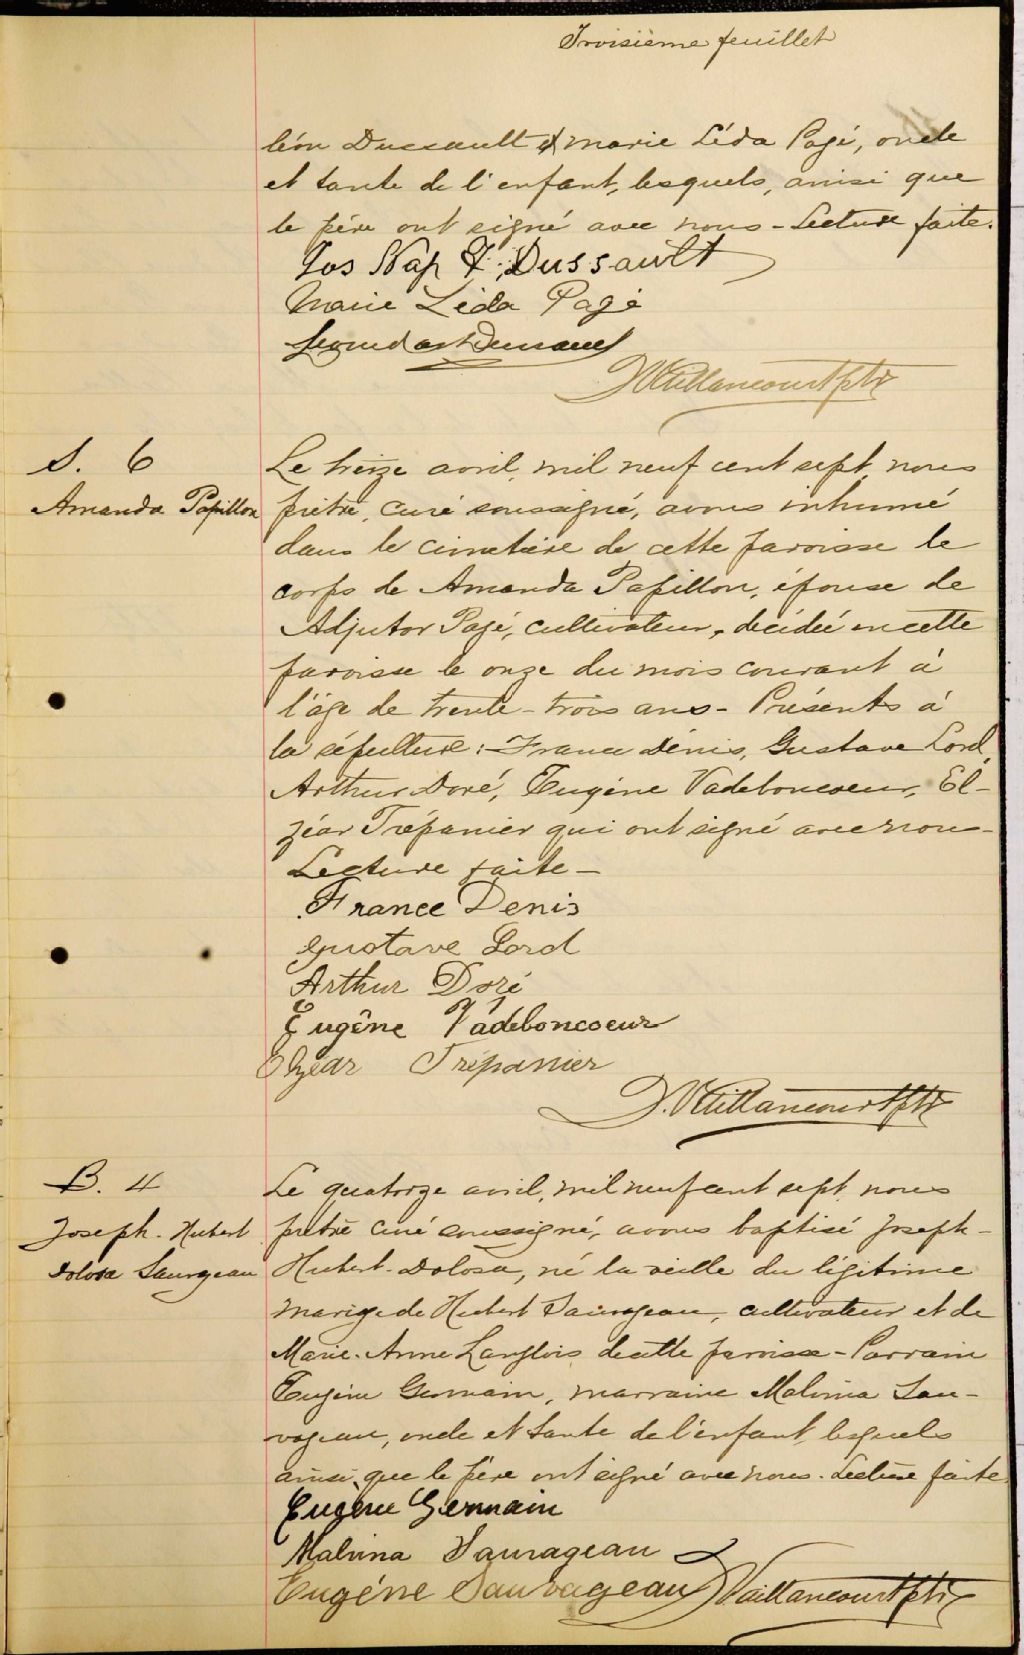 Troisième feuillet
léon Dussault & Marie Léda Pagé, oncle
et tante de l'enfant, lesquels, ainsi que
le père ont signé avec nous - Lecture faite.
Jos Nap F. Dussault
Marie Léda Pagé
Dussault
D. Vaillancourt ptr
S. 6
Amanda Papillon
Le treize avril, mil neuf cent sept, nous
prêtre, curé soussigné, avons inhumé
dans le cimetière de cette paroisse le
corps de Amanda Papillon, épouse de
Adjutor Pagé, cultivateur, décédée en cette
paroisse le onze du mois courant à
l'âge de trente-trois ans - Présents à
la sépulture: France Dénis, Gustave Lord,
Arthur Doré, Eugène Vadeboncoeur, El-
zéar Trépanier qui ont signé avec nous -
Lecture faite -
France Denis
Gustave Lord
Arthur Doré
Eugène Vadeboncoeur
Elzéar Trépanier
D. Vaillancourt ptr
B. 4
Joseph-Hubert
Dolosa Sauvageau
Le quatorze avril, mil neuf cent sept, nous
prêtre curé soussigné, avons baptisé Joseph-
Hubert-Dolosa, né la veille du légitime
mariage de Hubert Sauvageau, cultivateur et de
Marie-Anne Langlois de cette paroisse - Parrain
Eugène Germain, marraine Malvina Sau-
vageau, oncle et tante de l'enfant, lesquels
ainsi que le père ont signé avec nous. Lecture faite.
Eugène Germain
Malvina Sauvageau
Eugène Sauvageau D Vaillancourt ptr